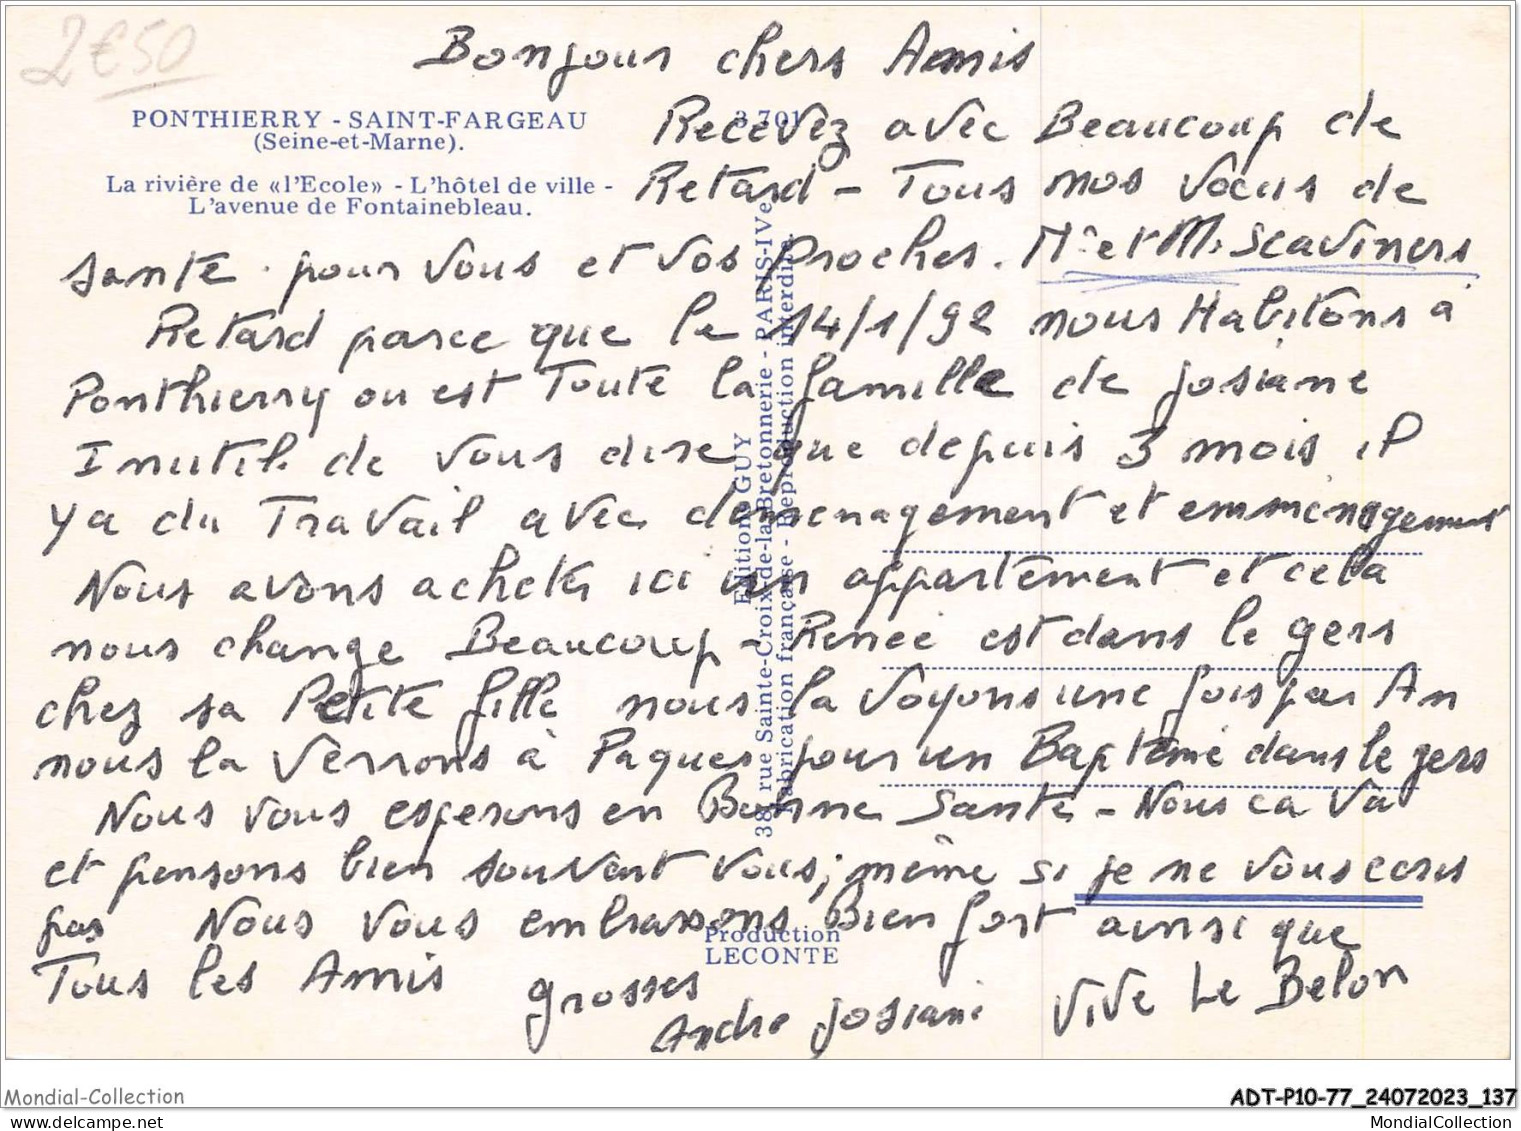 2€50
Bonjour chers Amis
PONTHIERRY - SAINT-FARGEAU
(Seine-et-Marne).
3.701
La rivière de «l'Ecole» - L'hôtel de ville -
L'avenue de Fontainebleau.
Recevez avec Beaucoup de
Retard - Tous nos Voeux de
santé pour Vous et Vos Proches. Me et M. Scaviners
Retard parce que le 14/1/92 nous Habitons à
Ponthierry ou est Toute la famille de josiane
Inutile de vous dire que depuis 3 mois il
ya du Travail avec demenagement et emménagement
Nous avons acheté ici un appartement et cela
nous change Beaucoup - Renée est dans le gers
chez sa Petite fille nous la Voyons une fois par An
nous la Verrons à Paques pour un Baptème dans le gers
Nous vous esperons en Bonne Santé - Nous ca Va
et pensons bien souvent vous; même si je ne vous ecris
pas Nous Vous embrassons Bien fort ainsi que
Tous les Amis grosses
Andre Josiane Vive Le Belon
Editions GUY
38, rue Sainte-Croix-de-la-Bretonnerie - PARIS-IVe
Fabrication française - Reproduction interdite.
Production
LECONTE
Mondial-Collection
ADT-P10-77_24072023_137
mc.mondialcollection@gmail.com
MondialCollection